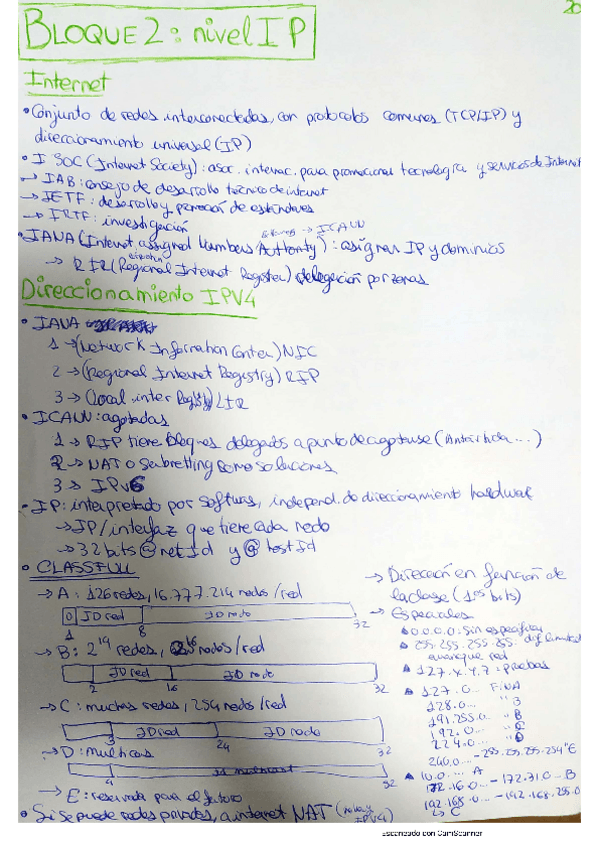 20
BLOQUE 2: nivel IP
Internet
• Conjunto de redes interconectadas, con protocolos comunes (TCP/IP) y
direccionamiento universal (IP)
• ISOC (Internet Society): asoc. internac. para promocionar tecnología y servicios de Internet
→ IAB: consejo de desarrollo técnico de internet
→ IETF: desarrollo y promoción de estándares
→ IRTF: investigación
→ ICANN
• IANA (Internet assigned Numbers Authority): asignan IP y dominios
→ RIR (Regional Internet Register) delegación por zonas
Direccionamiento IPV4
• IANA
1 → (Network Information Center) NIC
2 → (Regional Internet Registry) RIP
3 → (local inter Registry) LIR
• ICANN: agotadas
1 → RIP tiene bloques delegados a punto de agotarse
2 → NAT o Subnetting como soluciones
3 → IPv6
• IP: interpretado por software, independ. de direccionamiento hardware
→ IP/interfaz que tiene cada nodo
→ 32 bits @netId y @hostId
• CLASSFULL
→ A: 126 redes, 16.777.214 nodos/red
0 ID red ID nodo
1 8 32
→ B: 2^14 redes, nodos/red
ID red ID nodo
2 16 32
→ C: muchas redes, 254 nodos/red
ID red ID nodo
3 24 32
→ D: multicas
4 32
→ E: reservada para el futuro
• Si se puede redes privadas, a internet NAT
→ Dirección en función de
la clase (1os bits)
→ Especiales
0.0.0.0: sin especificar
255.255.255.255: dif. limitada
cualquier red
127.x.y.z: pruebas
127.0...
128.0...
191.255.0... " B
192.0...
224.0...
240.0... - 255.255.255.254 " E
10.0.... A
172.16.0... - 172.31.0 - B
192.168.0... - 192.168.255.0
→ C
Escaneado con CamScanner